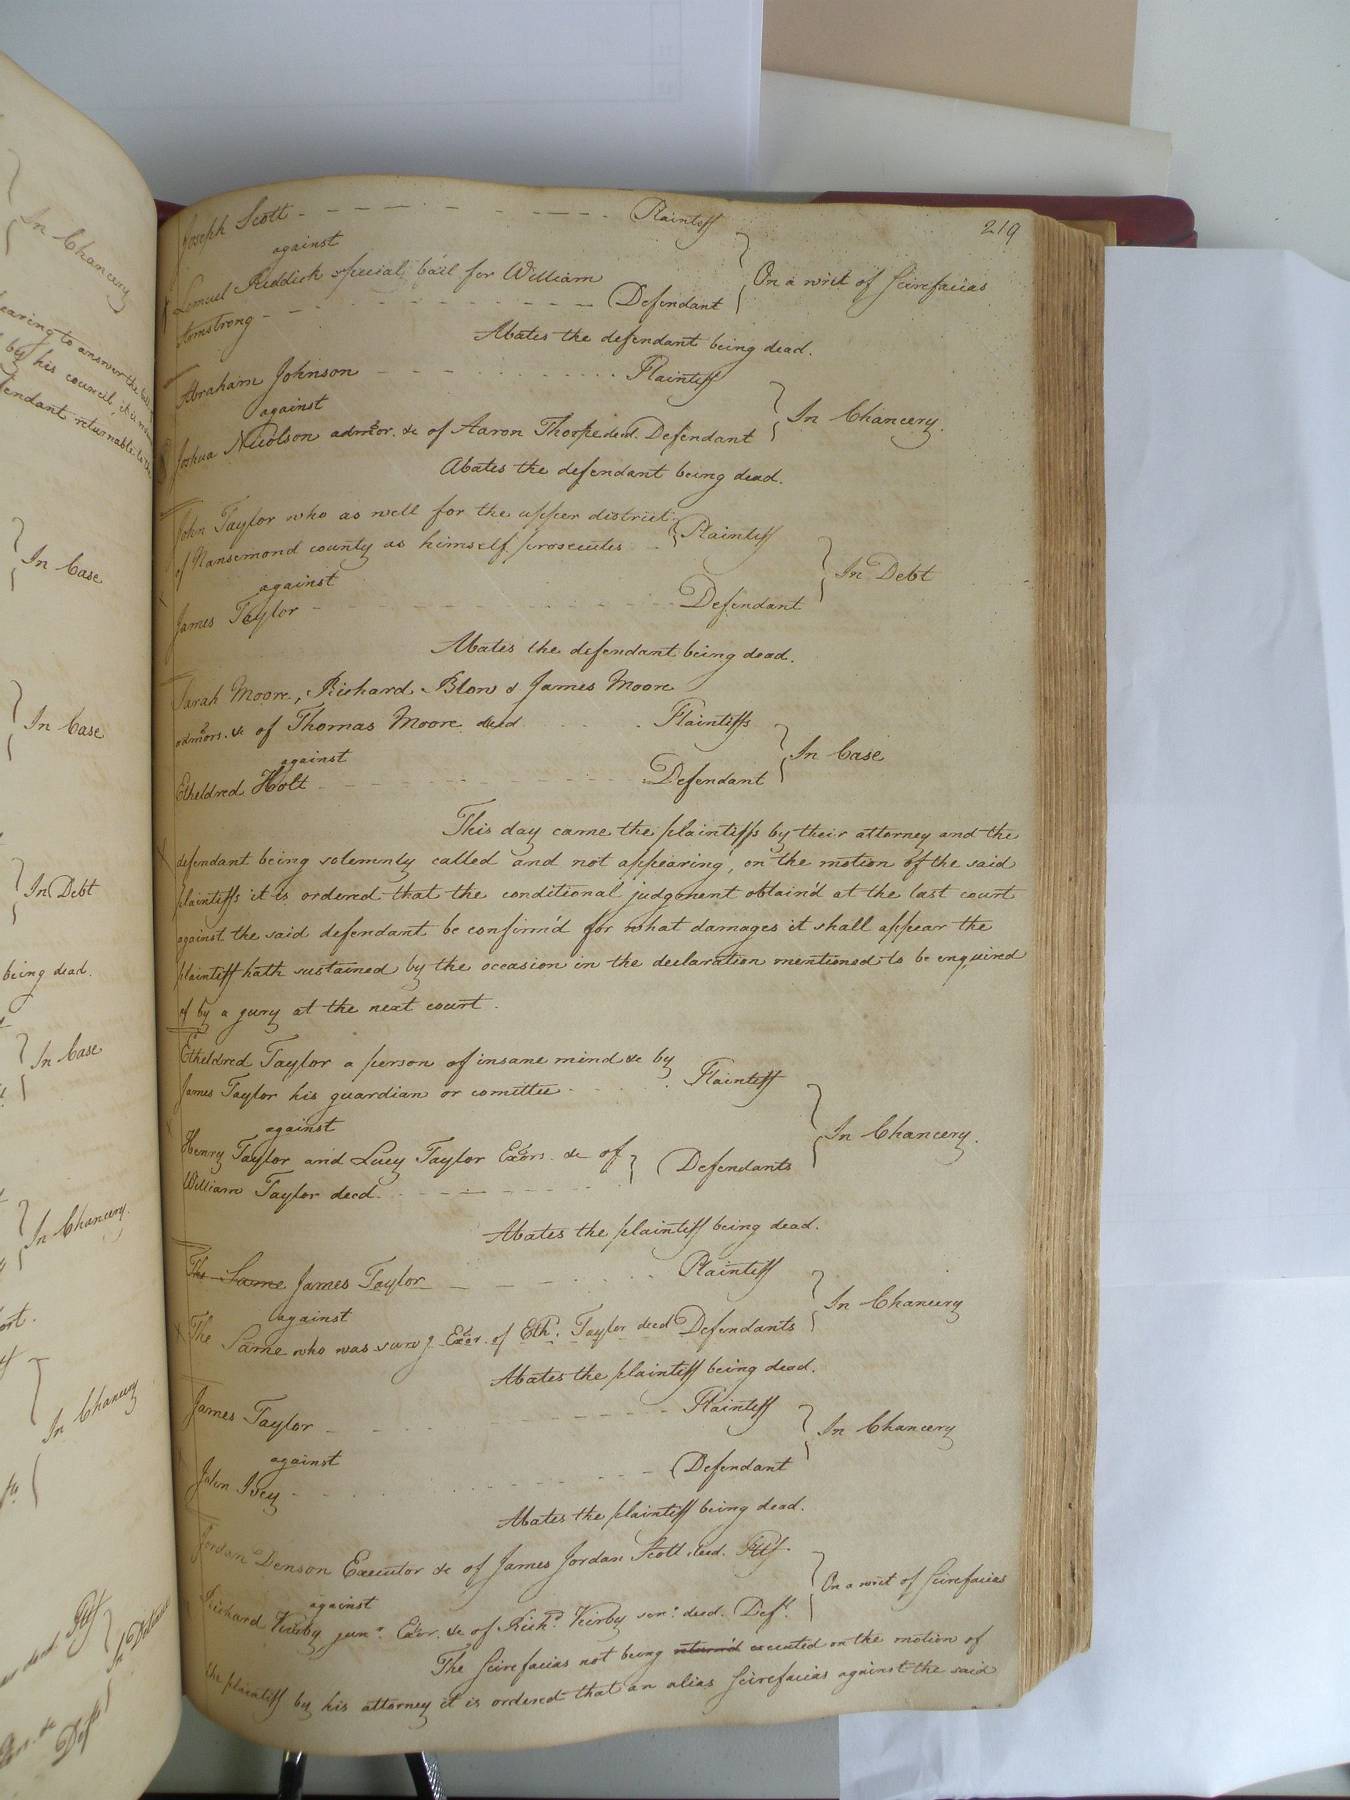 In Chancery
earing to answer the
by his council, it is
endant returnable to the
In Case
In Case
In Debt
being dead.
In Case
In Chancery.
In Chancery
dead Pltf
In Detinue
Defts
219
Joseph Scott Plaintiff
against
On a writ of Scirefacias
Lemuel Riddick special bail for William
Armstrong Defendant
Abates the defendant being dead.
Abraham Johnson Plaintiff
against
In Chancery.
Joshua Nicolson admor. &c of Aaron Thorpe decd. Defendant
Abates the defendant being dead.
John Taylor who as well for the upper district
of Nansemond county as himself prosecutes Plaintiff
against
In Debt
James Taylor Defendant
Abates the defendant being dead.
Sarah Moore, Richard Blow & James Moore
admors. &c of Thomas Moore decd Plaintiffs
against
In Case
Etheldred Holt Defendant
This day came the plaintiffs by their attorney and the
defendant being solemnly called and not appearing, on the motion of the said
plaintiffs it is ordered that the conditional judgment obtain'd at the last court
against the said defendant be confirm'd for what damages it shall appear the
plaintiff hath sustained by the occasion in the declaration mentioned to be enquired
of by a jury at the next court.
Etheldred Taylor a person of insane mind &c by
James Taylor his guardian or comittee Plaintiff
against
In Chancery.
Henry Taylor and Lucy Taylor Exors. &c of
William Taylor decd. Defendants
Abates the plaintiff being dead.
The Same James Taylor Plaintiff
against
In Chancery
The Same who was survg. Exor. of Ethd. Taylor decd Defendants
Abates the plaintiff being dead.
James Taylor Plaintiff
against
In Chancery
John Ivey Defendant
Abates the plaintiff being dead.
Jordan Denson Executor &c of James Jordan Scott decd. Pltf.
against
On a writ of Scirefacias
Richard Kirby junr. Exor. &c of Richd. Kirby senr. decd. Deft.
The Scirefacias not being return'd executed on the motion of
the plaintiff by his attorney it is ordered that an alias Scirefacias against the said